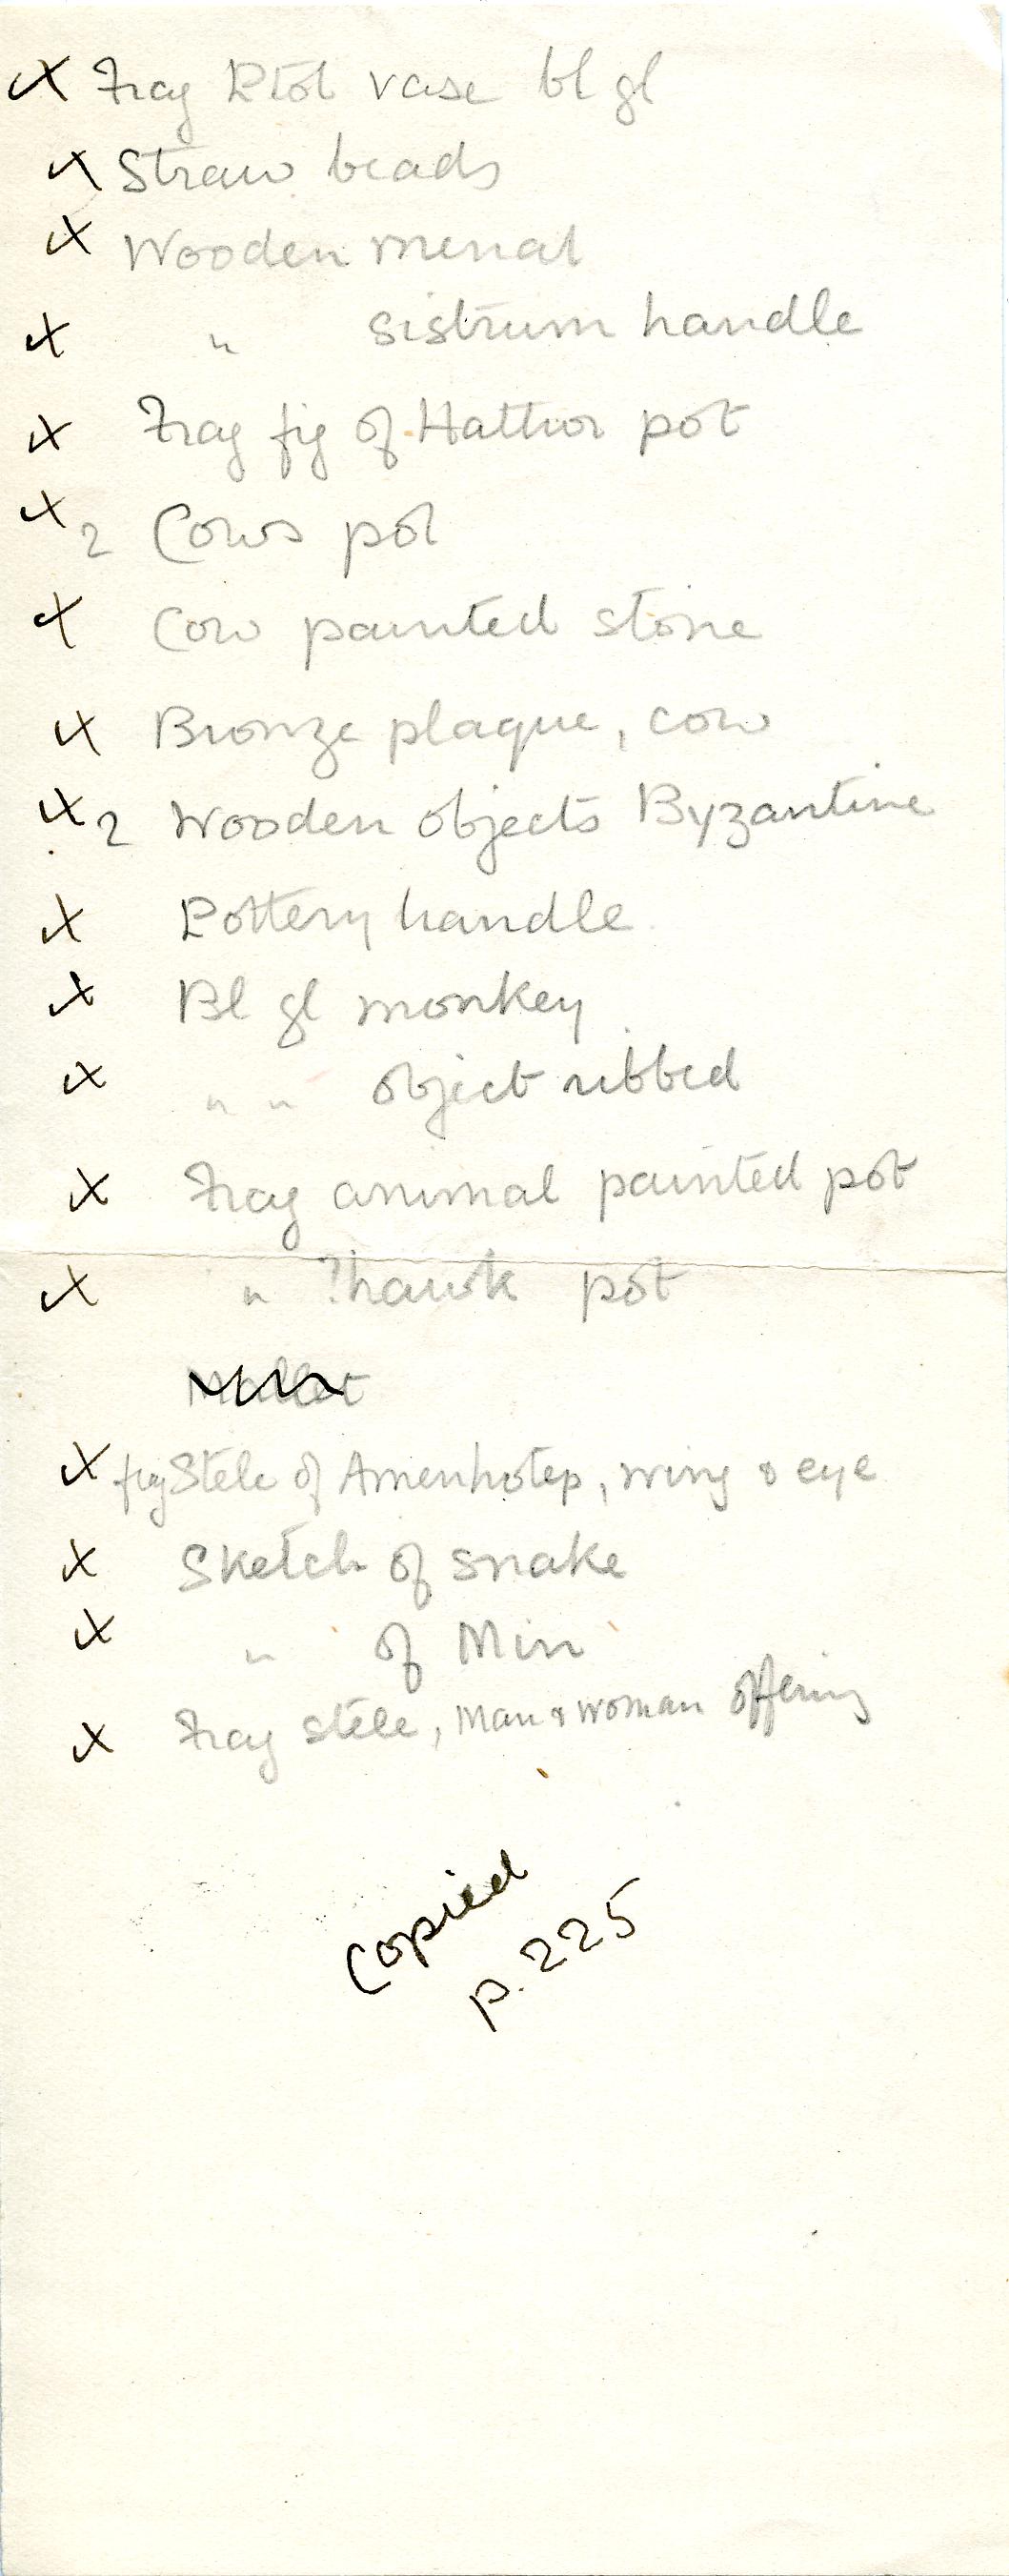 x Frag Ptol vase bl gl
x Straw beads
x Wooden menat
x " sistrum handle
x Frag fig of Hathor pot
x 2 Cows pot
x Cow painted stone
x Bronze plaque, cow
x 2 Wooden objects Byzantine
x Pottery handle
x Bl gl monkey
x " " object ribbed
x Frag animal painted pot
x " ?hawk pot
Mallet
x frag Stele of Amenhotep, wing & eye
x Sketch of snake
x " of Min
x Frag stele, Man & woman offering
Copied
p. 225